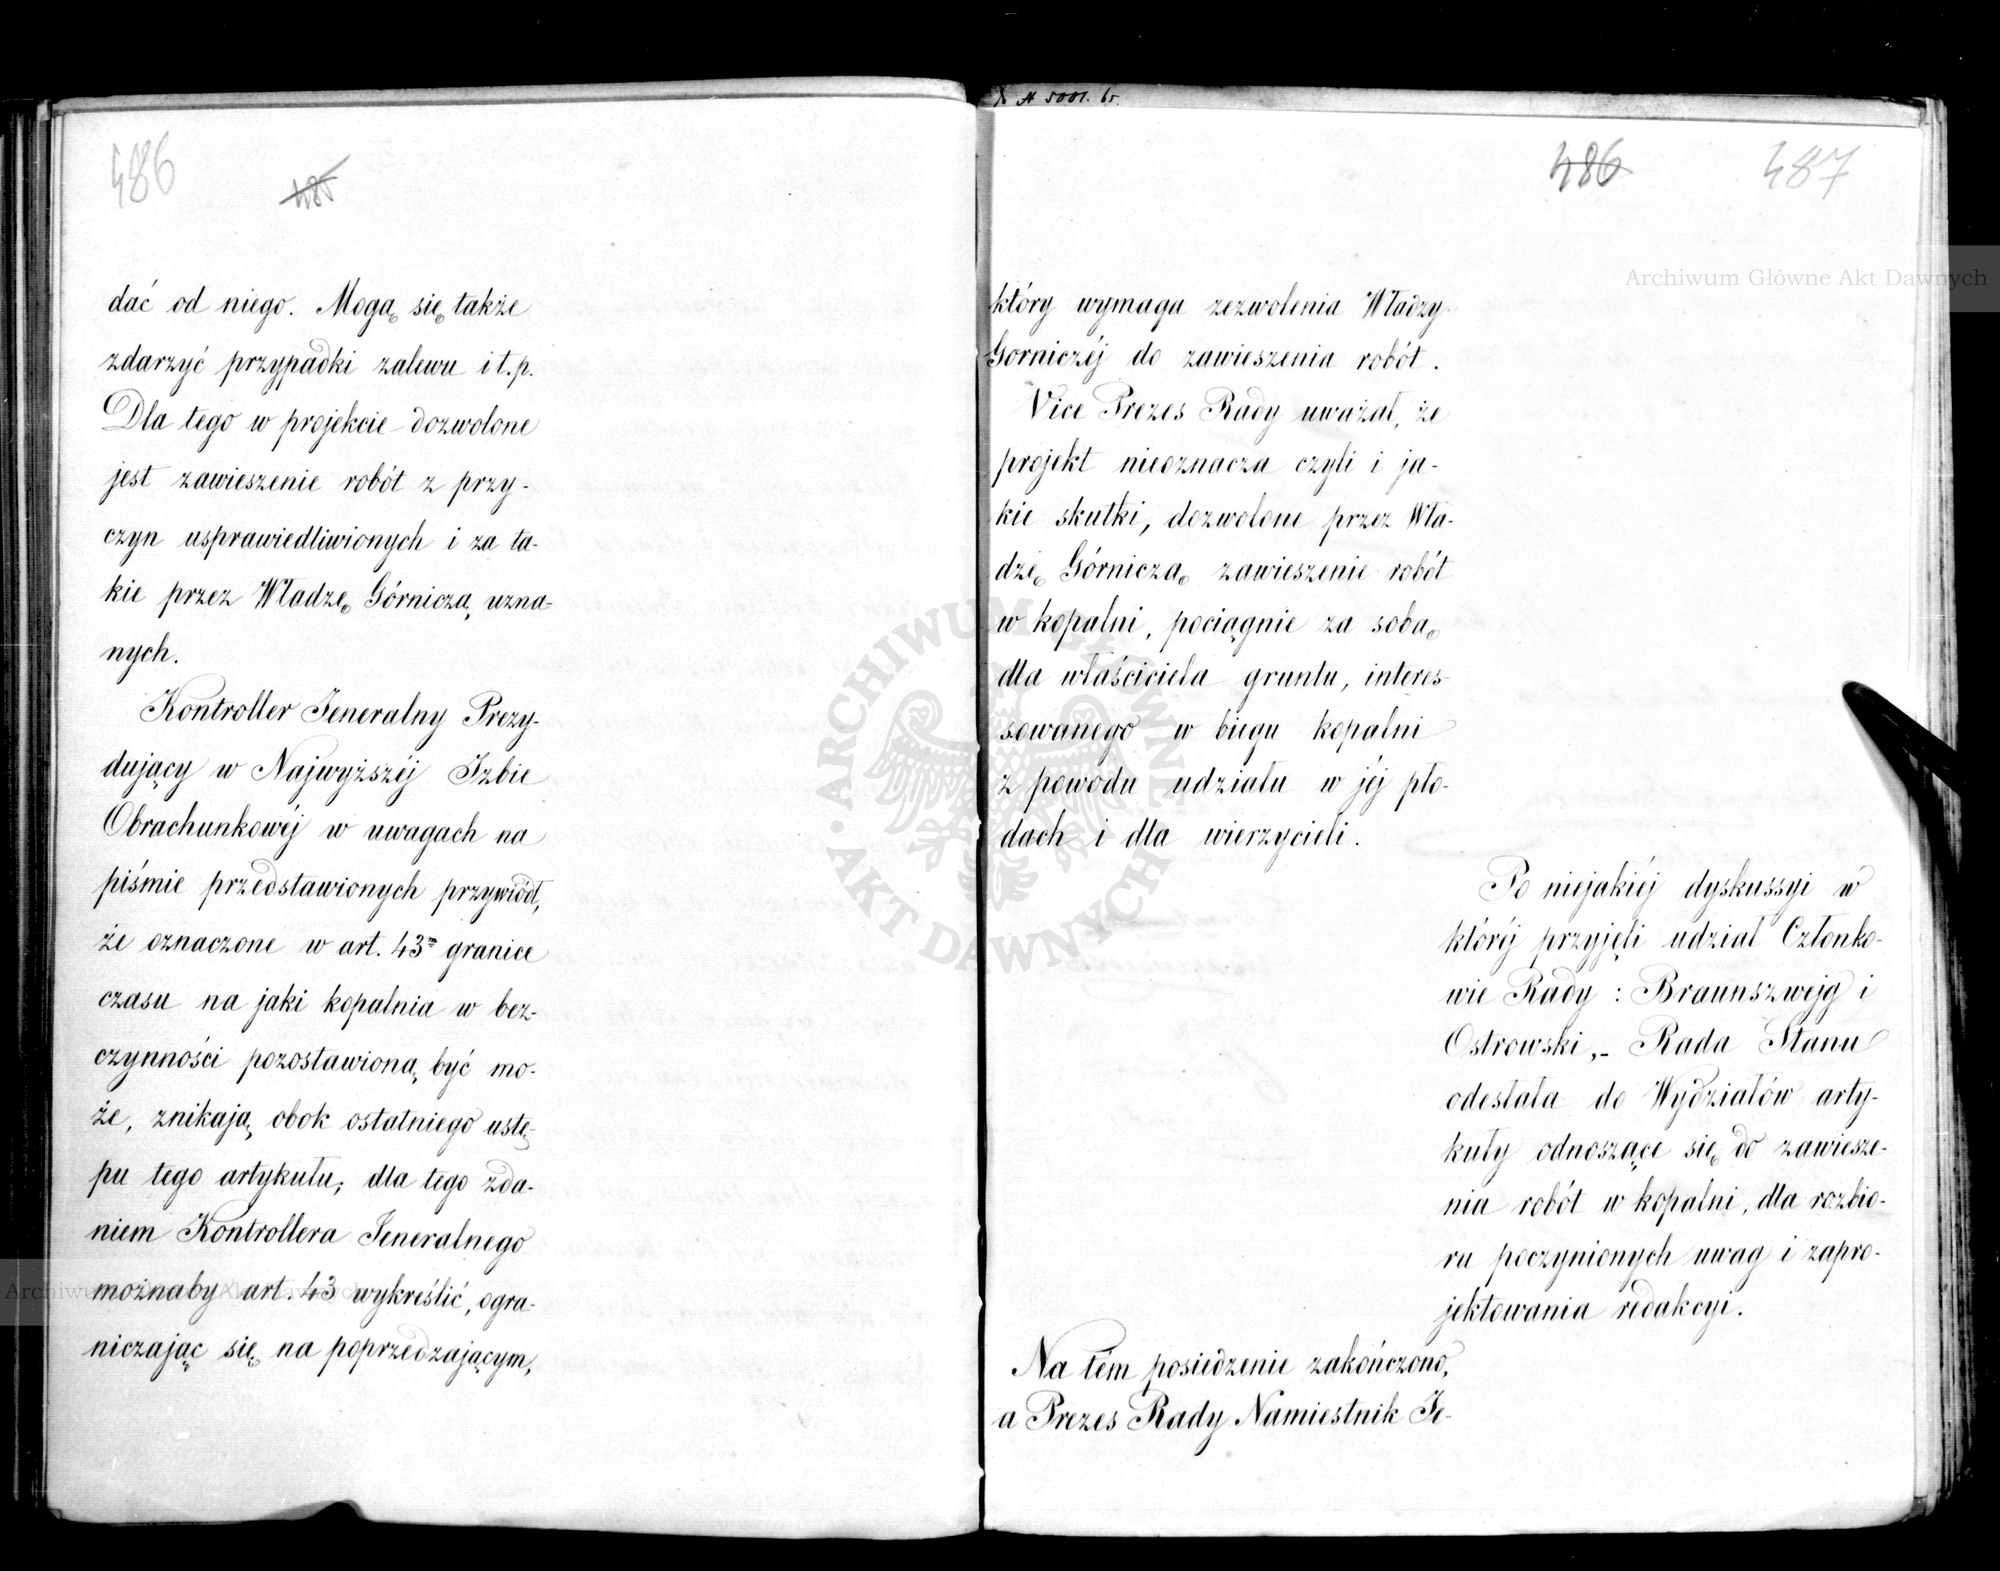 486
485
dać od niego. Mogą się także
zdarzyć przypadki zalewu i t. p.
Dla tego w projekcie dozwolone
jest zawieszenie robót z przy-
czyn usprawiedliwionych i za ta-
kie przez Władzę Górniczą uzna-
nych.
Kontroller Jeneralny Prezy-
dujący w Najwyższéj Izbie
Obrachunkowéj w uwagach na
piśmie przedstawionych przywiódł,
że oznaczone w art. 43m granice
czasu na jaki kopalnia w bez-
czynności pozostawioną być mo-
że, znikają obok ostatniego ustę-
pu tego artykułu; dla tego zda-
niem Kontrollera Jeneralnego
możnaby art. 43 wykreślić, ogra-
niczając się na poprzedzającym,
486 487
który wymaga zezwolenia Władzy
Gorniczéj do zawieszenia robót.
Vice Prezes Rady uważał, że
projekt nieoznacza czyli i ja-
kie skutki, dozwolone przez Wła-
dzę Górniczą zawieszenie robót
w kopalni, pociągnie za sobą
dla właściciela gruntu, interes-
sowanego w biegu kopalni
z powodu udziału w jéj pło-
dach i dla wierzycieli.
Po niejakiéj dyskussyi w
któréj przyjęli udział Członko-
wie Rady: Braunszwejg i
Ostrowski,- Rada Stanu
odesłała do Wydziałów arty-
kuły odnoszące się do zawiesze-
nia robót w kopalni, dla rozbio-
ru poczynionych uwag i zapro-
jektowania redakcyi.
Na tém posiedzenie zakończono,
a Prezes Rady Namiestnik Je-
Archiwum Główne Akt Dawnych
ARCHIWUM GŁÓWNE • AKT DAWNYCH